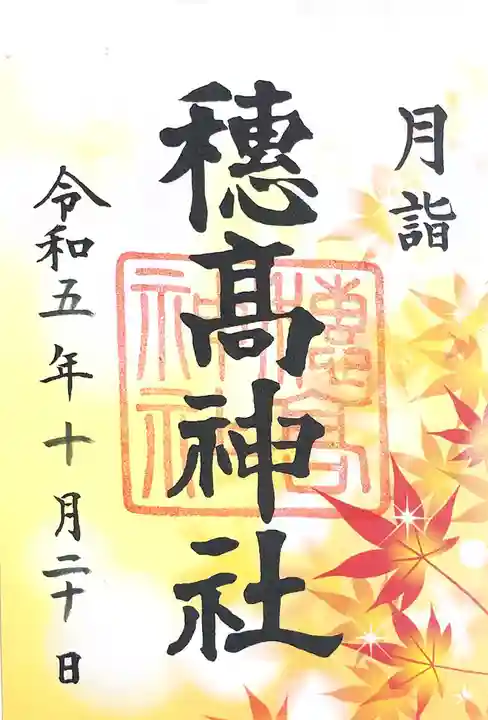 月詣
穂髙神社
穂髙神社
令和五年十月二十日